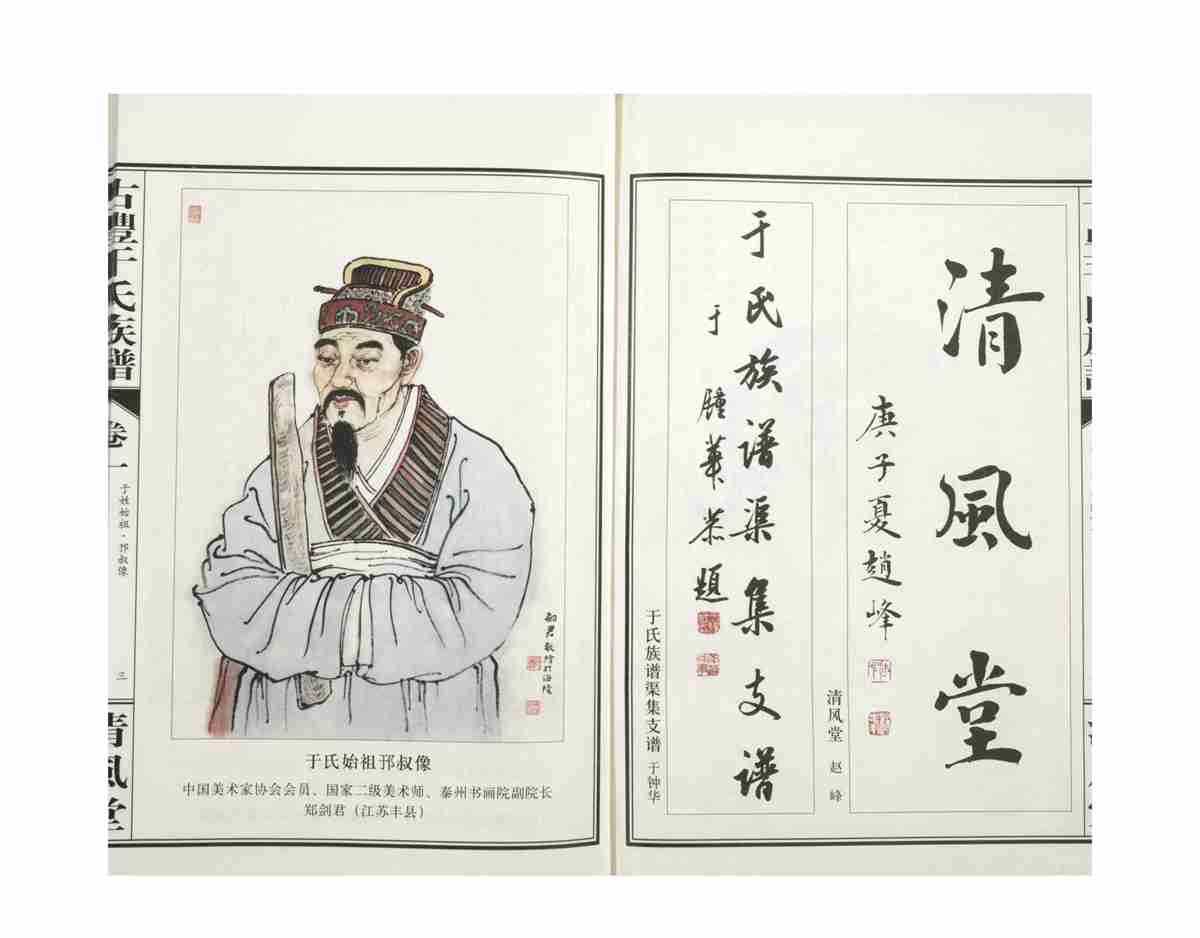 清風堂
庚子夏趙峰
清风堂 赵峰
于氏族谱渠集支谱
于腫華恭題
于氏族谱渠集支谱 于钟华
于氏始祖邘叔像
中国美术家协会会员、国家二级美术师、泰州书画院副院长
郑剑君（江苏丰县）
剑君敬繪於海陵
古豐于氏族譜
卷一
于姓始祖·邘叔像
三
清風堂